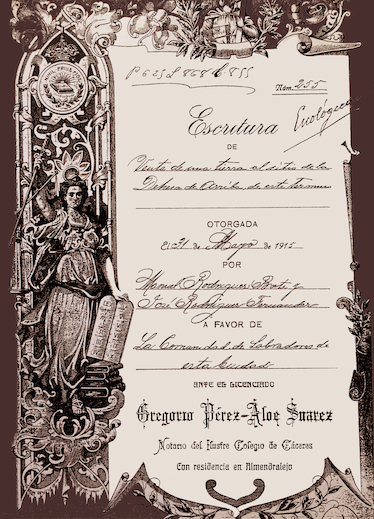 P 625 L 868 C. 855
Núm. 255
Enológica
Escritura
DE
Venta de una tierra al sitio de la
Dehesa de Arriba de este termino
OTORGADA
El 31 de Mayo de 1915
POR
Manuel Rodriguez y
José Rodriguez Fernandez
A FAVOR DE
La Comunidad de Labradores de
esta Ciudad
ANTE EL LICENCIADO
Gregorio Pérez-Aloe Suarez
Notario del Ilustre Colegio de Cáceres
Con residencia en Almendralejo